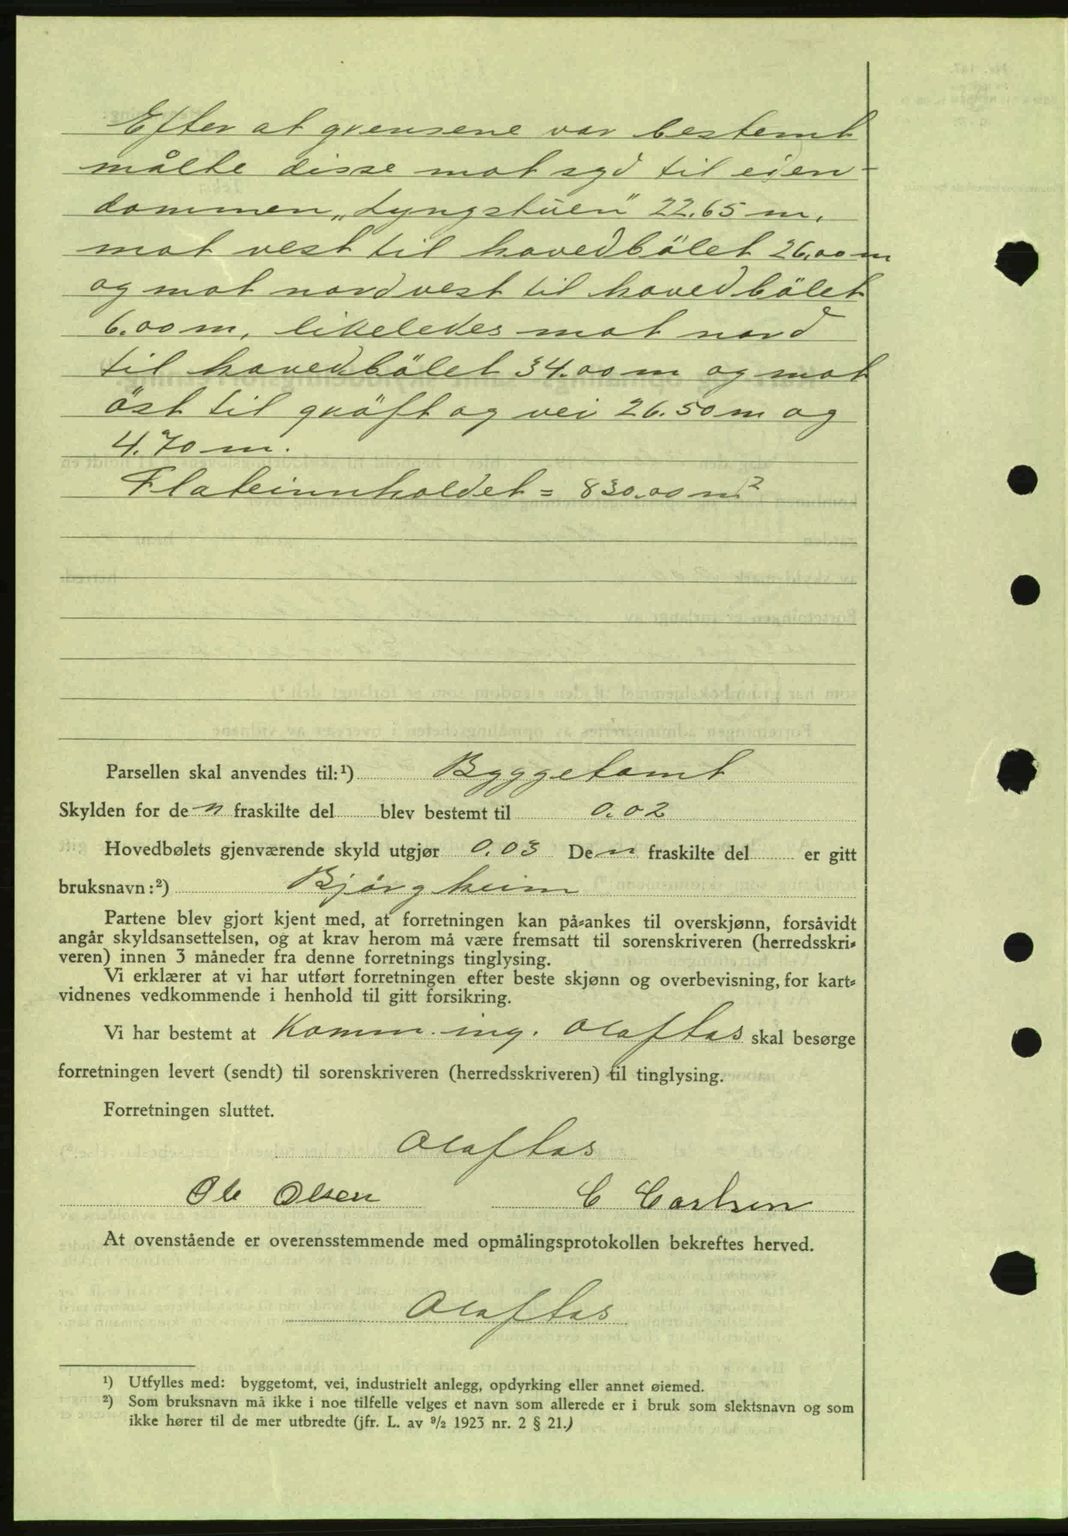 Efter at grensene var bestemt
målte disse mot syd til eien-
dommen „Lyngstuen" 22.65 m,
mot vest til hovedbölet 26,00 m
og mot nordvest til hovedbölet
6.00 m, likeledes mot nord
til hovedbölet 34.00 m og mot
öst til gröft og vei 26.50 m og
4.70 m.
Flateinnholdet = 830.00 m²
Parsellen skal anvendes til:¹) Byggetomt
Skylden for den fraskilte del blev bestemt til 0.02
Hovedbølets gjenværende skyld utgjør 0.03 Den fraskilte del er gitt
bruksnavn:²) Bjørgheim
Partene blev gjort kjent med, at forretningen kan på-ankes til overskjønn, forsåvidt
angår skyldsansettelsen, og at krav herom må være fremsatt til sorenskriveren (herredsskri-
veren) innen 3 måneder fra denne forretnings tinglysing.
Vi erklærer at vi har utført forretningen efter beste skjønn og overbevisning, for kart-
vidnenes vedkommende i henhold til gitt forsikring.
Vi har bestemt at Komm. ing. Olaf Aas skal besørge
forretningen levert (sendt) til sorenskriveren (herredsskriveren) til tinglysing.
Forretningen sluttet.
Olaf Aas
Ole Olsen C Carlsen
At ovenstående er overensstemmende med opmålingsprotokollen bekreftes herved.
Olaf Aas
¹) Utfylles med: byggetomt, vei, industrielt anlegg, opdyrking eller annet øiemed.
²) Som bruksnavn må ikke i noe tilfelle velges et navn som allerede er i bruk som slektsnavn og som
ikke hører til de mer utbredte (jfr. L. av 9/2 1923 nr. 2 § 21.)